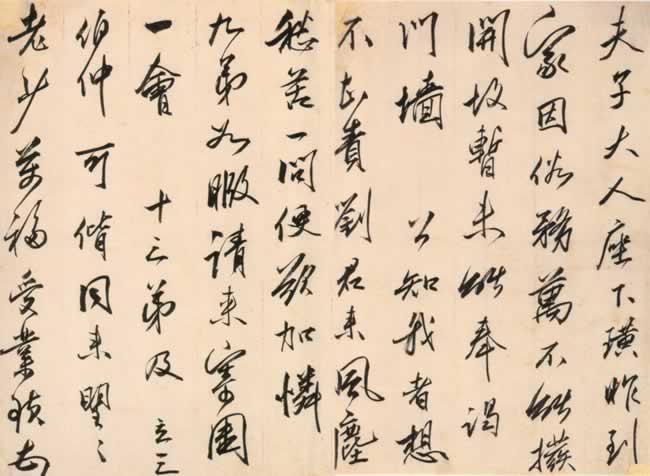 夫子大人座下璜昨到
家因俗務萬不能撥
開故暫未能奉謁
門墻 公知我者想
不為責劉君未風塵
愁苦一問便欲加憐
九弟如暇請來家園
一會 十三弟及
伯仲可偕同來望々
老少萬福受業